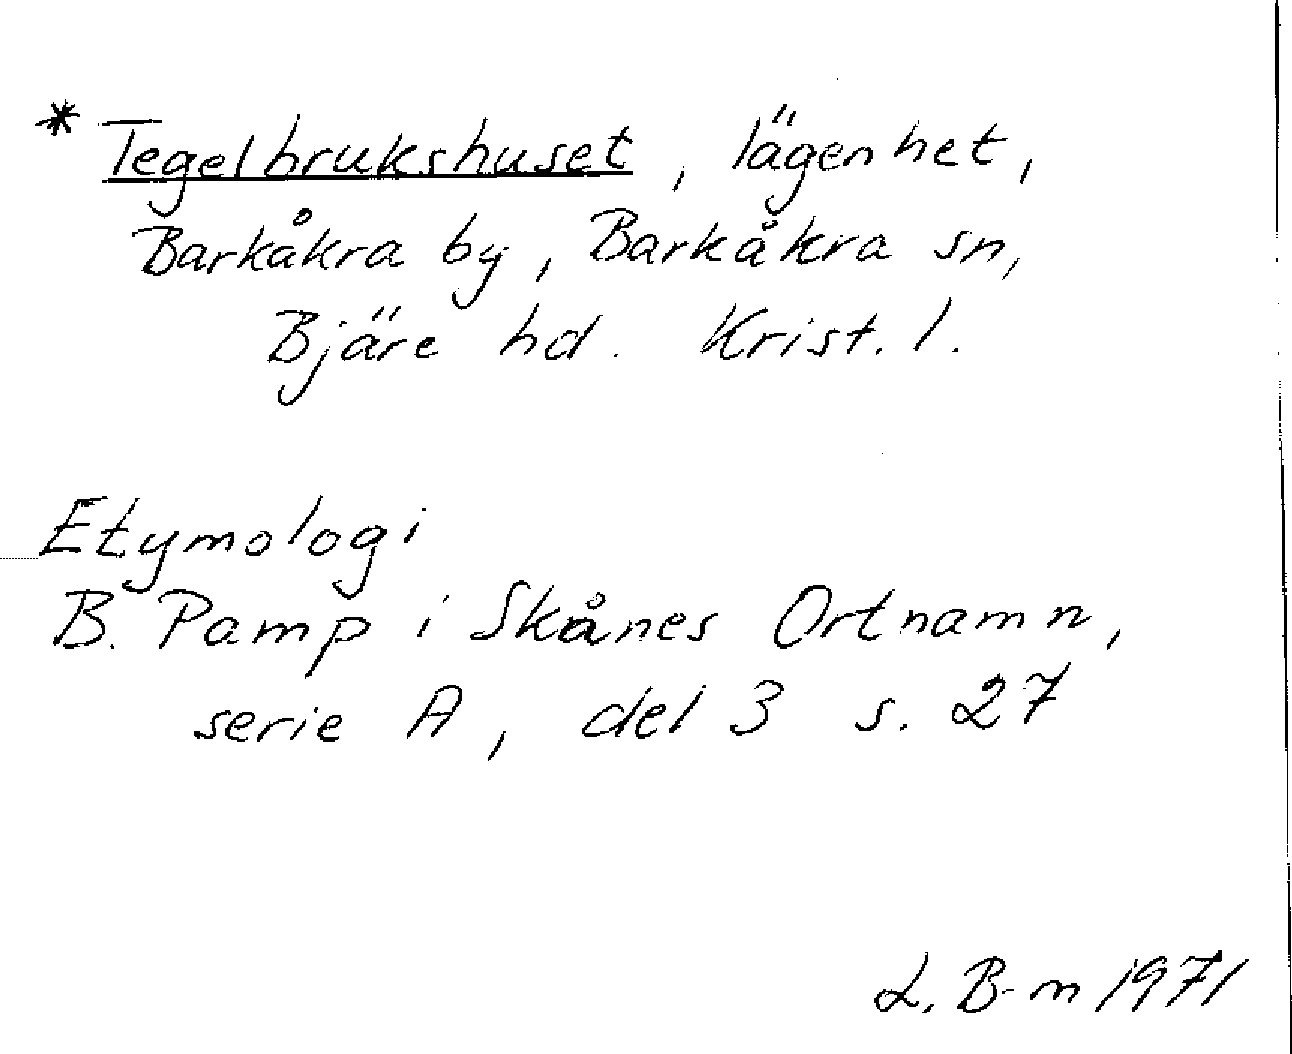 * Tegelbrukshuset, lägenhet,
Barkåkra by, Barkåkra sn,
Bjäre hd. Krist. l.
Etymologi
B. Pamp i Skånes Ortnamn,
serie A, del 3 s. 27
L. B-m 1971